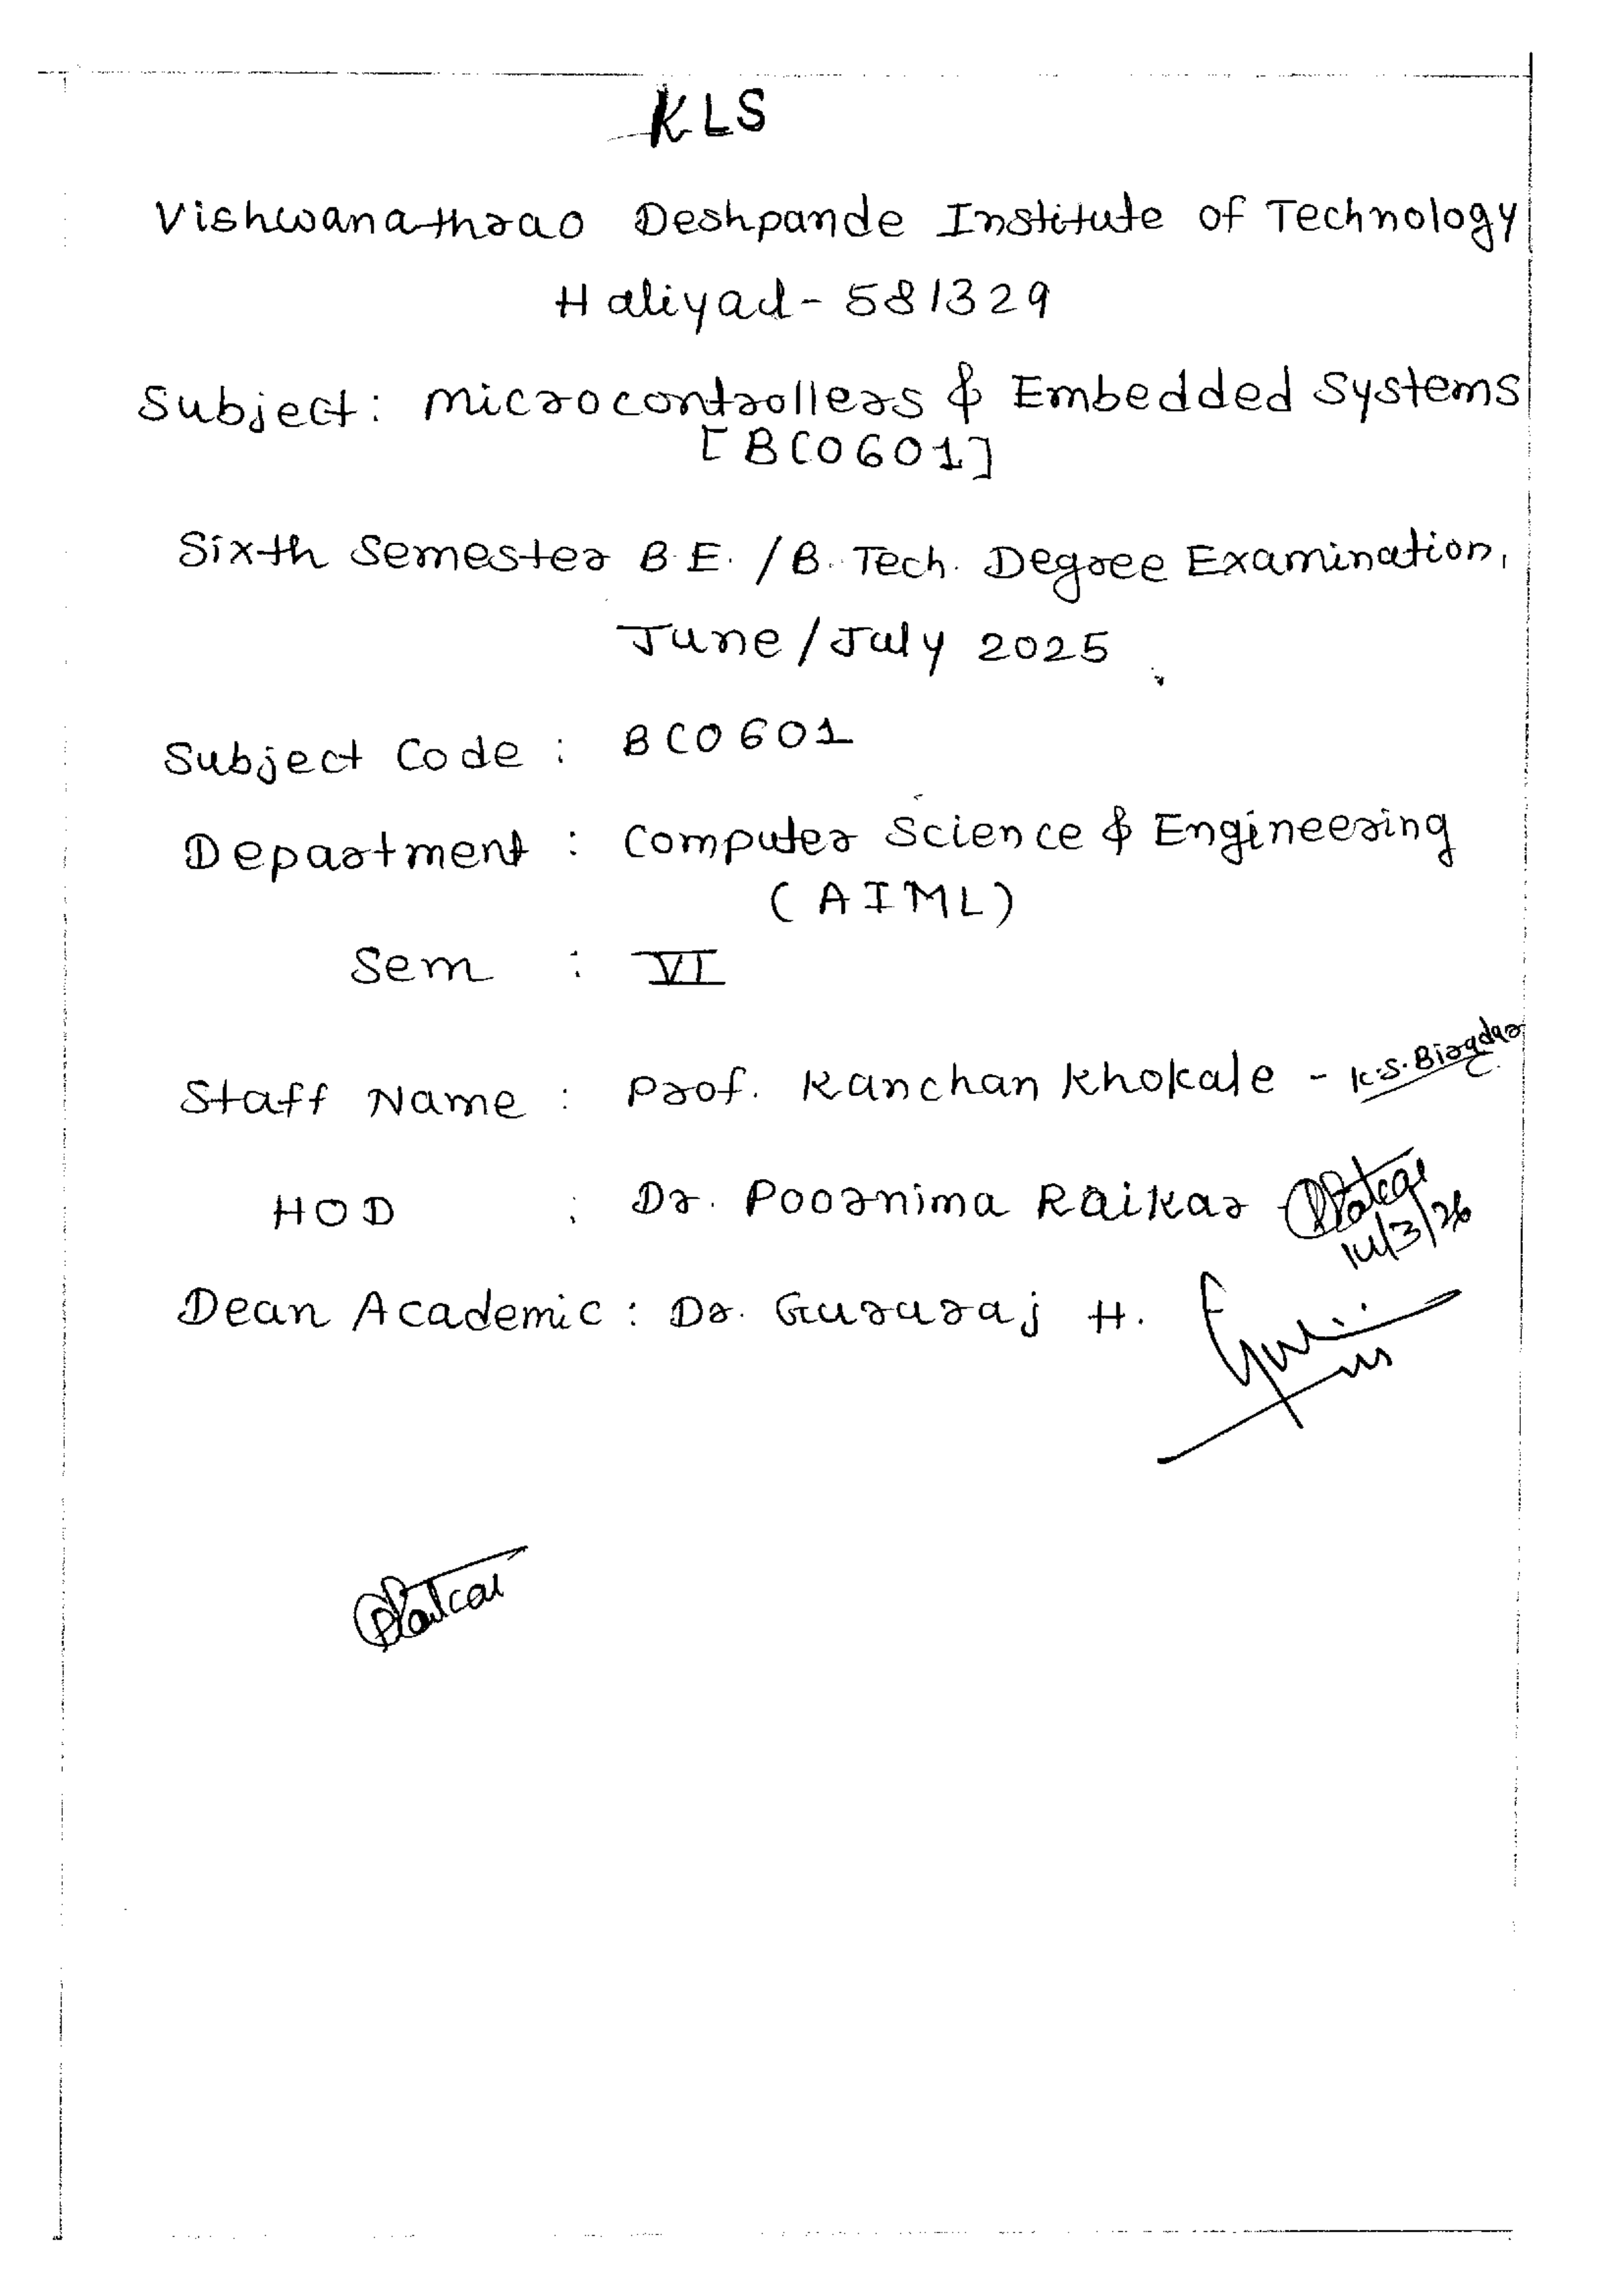 KLS
Vishwanathrao Deshpande Institute of Technology
Haliyal - 581329
Subject: Microcontrollers & Embedded Systems
[BCO601]
Sixth Semester B.E. / B. Tech. Degree Examination,
June / July 2025
Subject Code : BCO601
Department : Computer Science & Engineering
(AIML)
Sem : VI
Staff Name : Prof. Kanchan Khokale - K.S. Biragdar
HOD : Dr. Poornima Raikar
14/3/26
Dean Academic : Dr. Gururaj H.